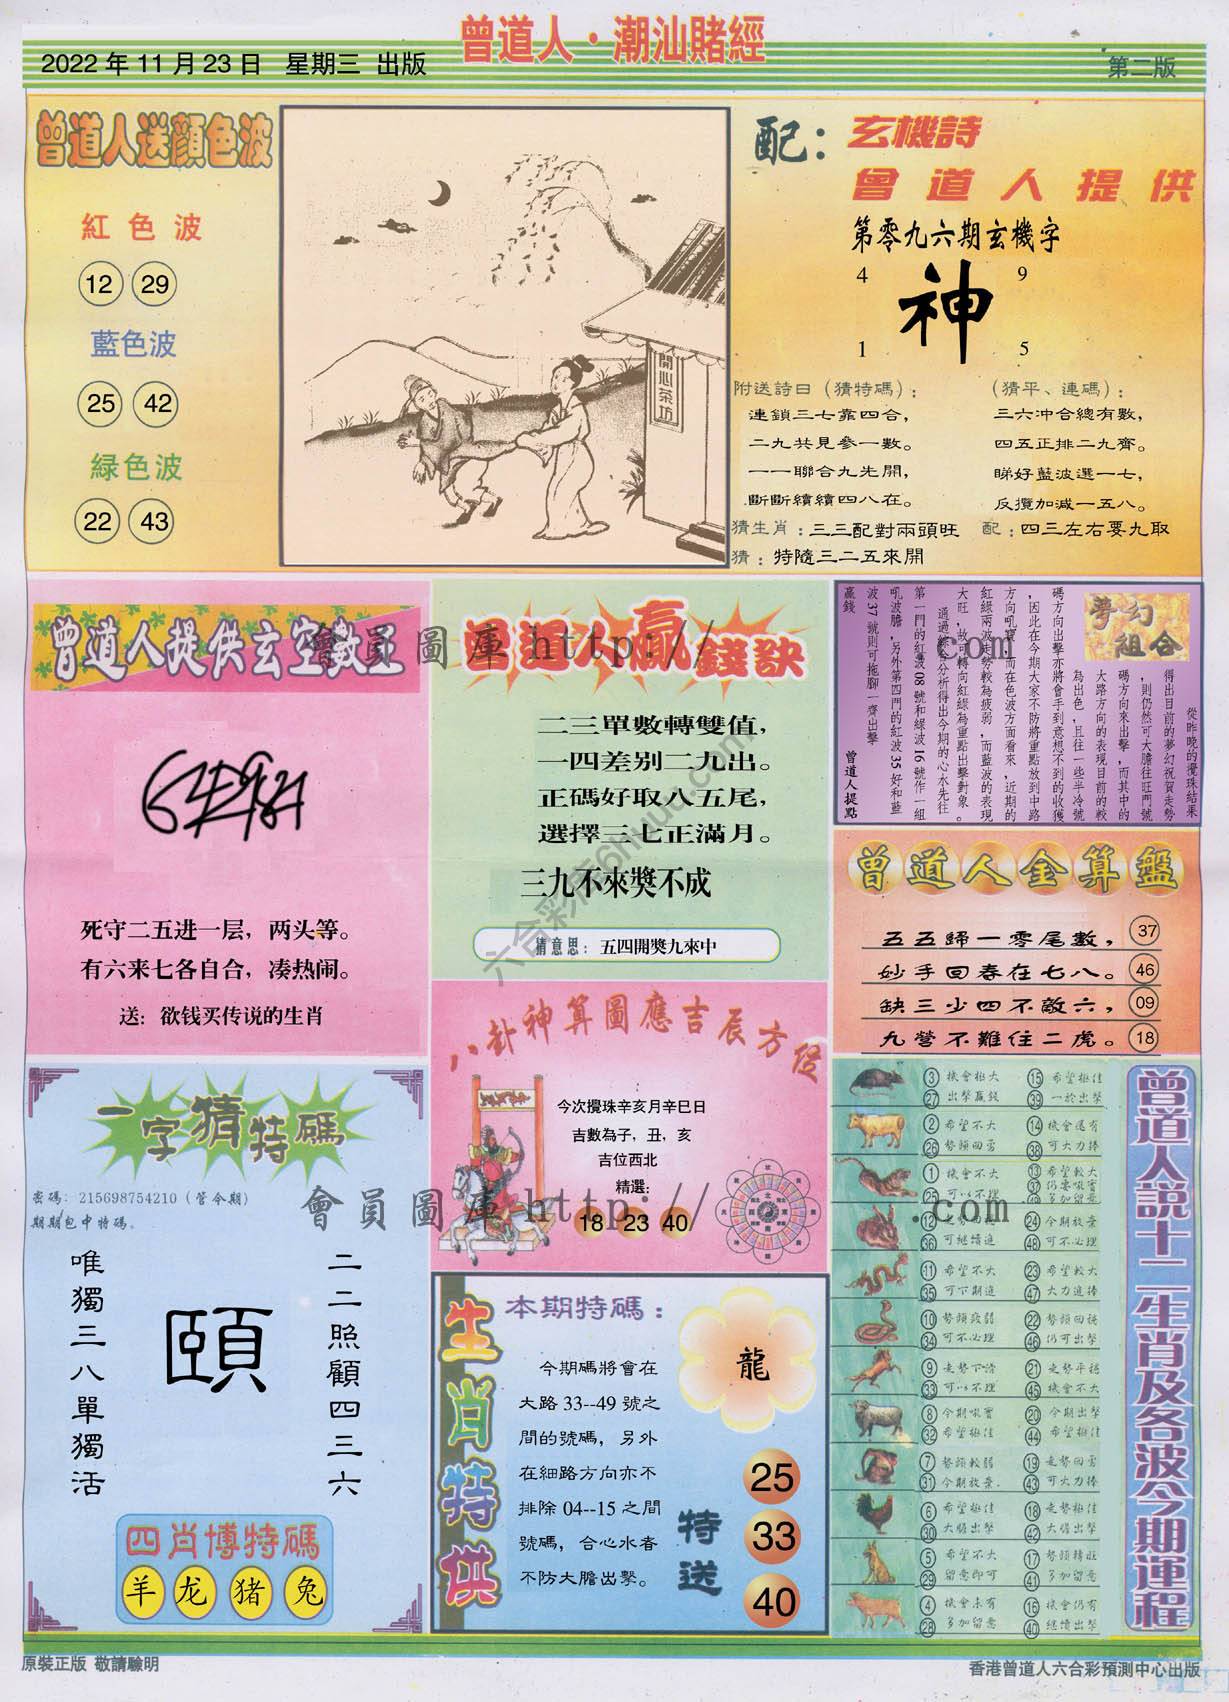 曾道人·潮汕賭經
2022 年 11 月 23 日 星期三 出版
第二版
曾道人送顔色波
紅色波
12 29
藍色波
25 42
緑色波
22 43
開心茶坊
配：玄機詩
曾道人提供
第零九六期玄機字
4 9
神
1 5
附送詩曰（猜特碼）：
連鎖三七靠四合，
二九共見參一數。
一一聯合九先開，
斷斷續續四八在。
（猜平、連碼）：
三六冲合總有數，
四五正排二九齊。
睇好藍波選一七，
反攬加減一五八。
猜生肖：三三配對兩頭旺
配：四三左右要九取
猜：特隨三二五來開
曾道人提供玄空數王
死守二五进一层，两头等。
有六来七各自合，凑热闹。
送：欲钱买传说的生肖
曾道人贏錢訣
二三單數轉雙值，
一四差别二九出。
正碼好取八五尾，
選擇三七正滿月。
三九不來獎不成
猜意思：五四開獎九來中
夢幻組合
從昨晚的攪珠結果
得出目前的夢幻祝賀走勢
，則仍然可大膽往旺門號
碼方向來出擊，而其中的
大路方向的表現目前的較
為出色，且往一些半冷號
碼方向出擊亦將會手到意想不到的收獲
，因此在今期大家不防將重點放到中路
方向吼寶，而在色波方面看來，近期的
紅綠兩波走勢較為疲弱，而藍波的表現
大旺，故可轉向紅綠為重點出擊對象。
通過綜合分析得出今期的心水先往
第一門的紅波08號和綠波16號作一組
吼波膽，另外第四門的紅波35好和藍
波37號則可拖腳一齊出擊
贏錢
曾道人提點
曾道人金算盤
五五歸一零尾數， 37
妙手回春在七八。 46
缺三少四不敵六， 09
九營不難住二虎。 18
八卦神算圖應吉辰方位
今次攪珠辛亥月辛巳日
吉數為子，丑，亥
吉位西北
精選：
18 23 40
一字猜特碼
密碼：215698754210（管令期）
期期包中特碼。
二二照顧四三六
頤
唯獨三八單獨活
四肖博特碼
羊 龙 猪 兔
生肖特供
本期特碼：
龍
今期碼將會在
大路 33--49 號之
間的號碼，另外
在細路方向亦不
排除 04--15 之間
號碼，合心水者
不防大膽出擊。
特送
25
33
40
曾道人説十二生肖及各波今期運程
3 機會極大 15 希望極佳
27 出擊贏錢 39 一於出擊
2 希望不大 14 機會還有
26 勢頭回勇 38 可大力捧
1 機會不大 13 希望較大
25 可以不理 37 仍要吼實
49 多加留意
12 24 今期放棄
36 可繼續追 48 可不必理
11 希望不大 23 希望較大
35 可下期追 47 大力追捧
10 勢頭疲弱 22 勢頭回穩
34 可不必理 46 仍可出擊
9 走勢下滑 21 走勢平穩
33 可以不理 45 機會不大
8 今期吼實 20 今期出擊
32 希望極佳 44 希望極佳
7 勢頭較弱 19 走勢回勇
31 今期放棄 43 可大力捧
6 希望極佳 18 走勢極佳
30 大膽出擊 42 大膽出擊
5 希望不大 17 勢頭轉旺
29 留意即可 41 多加留意
4 機會未有 16 機會仍有
28 多加留意 40 繼續出擊
原裝正版 敬請驗明
香港曾道人六合彩預測中心出版
會員圖庫 http:// .com
會員圖庫 http:// .com
六合彩库6huu.com